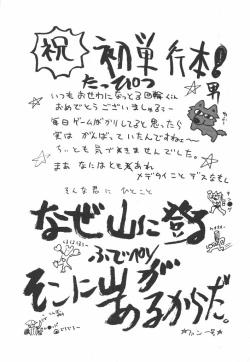 祝
初単行本!
たっぴつ
男
いつもおせわになっとる四輪くん
おめでとうございましゅるぅー
毎日ゲームばかりしてると思ったら
実はがんばっていたんですねェ〜
ちっとも気づきませんでした。
まあなにはともあれ
メデタイことデスなもし
そんな君にひとこと
なぜ山に登る
ふでペン
そこに山が
あるからだ。